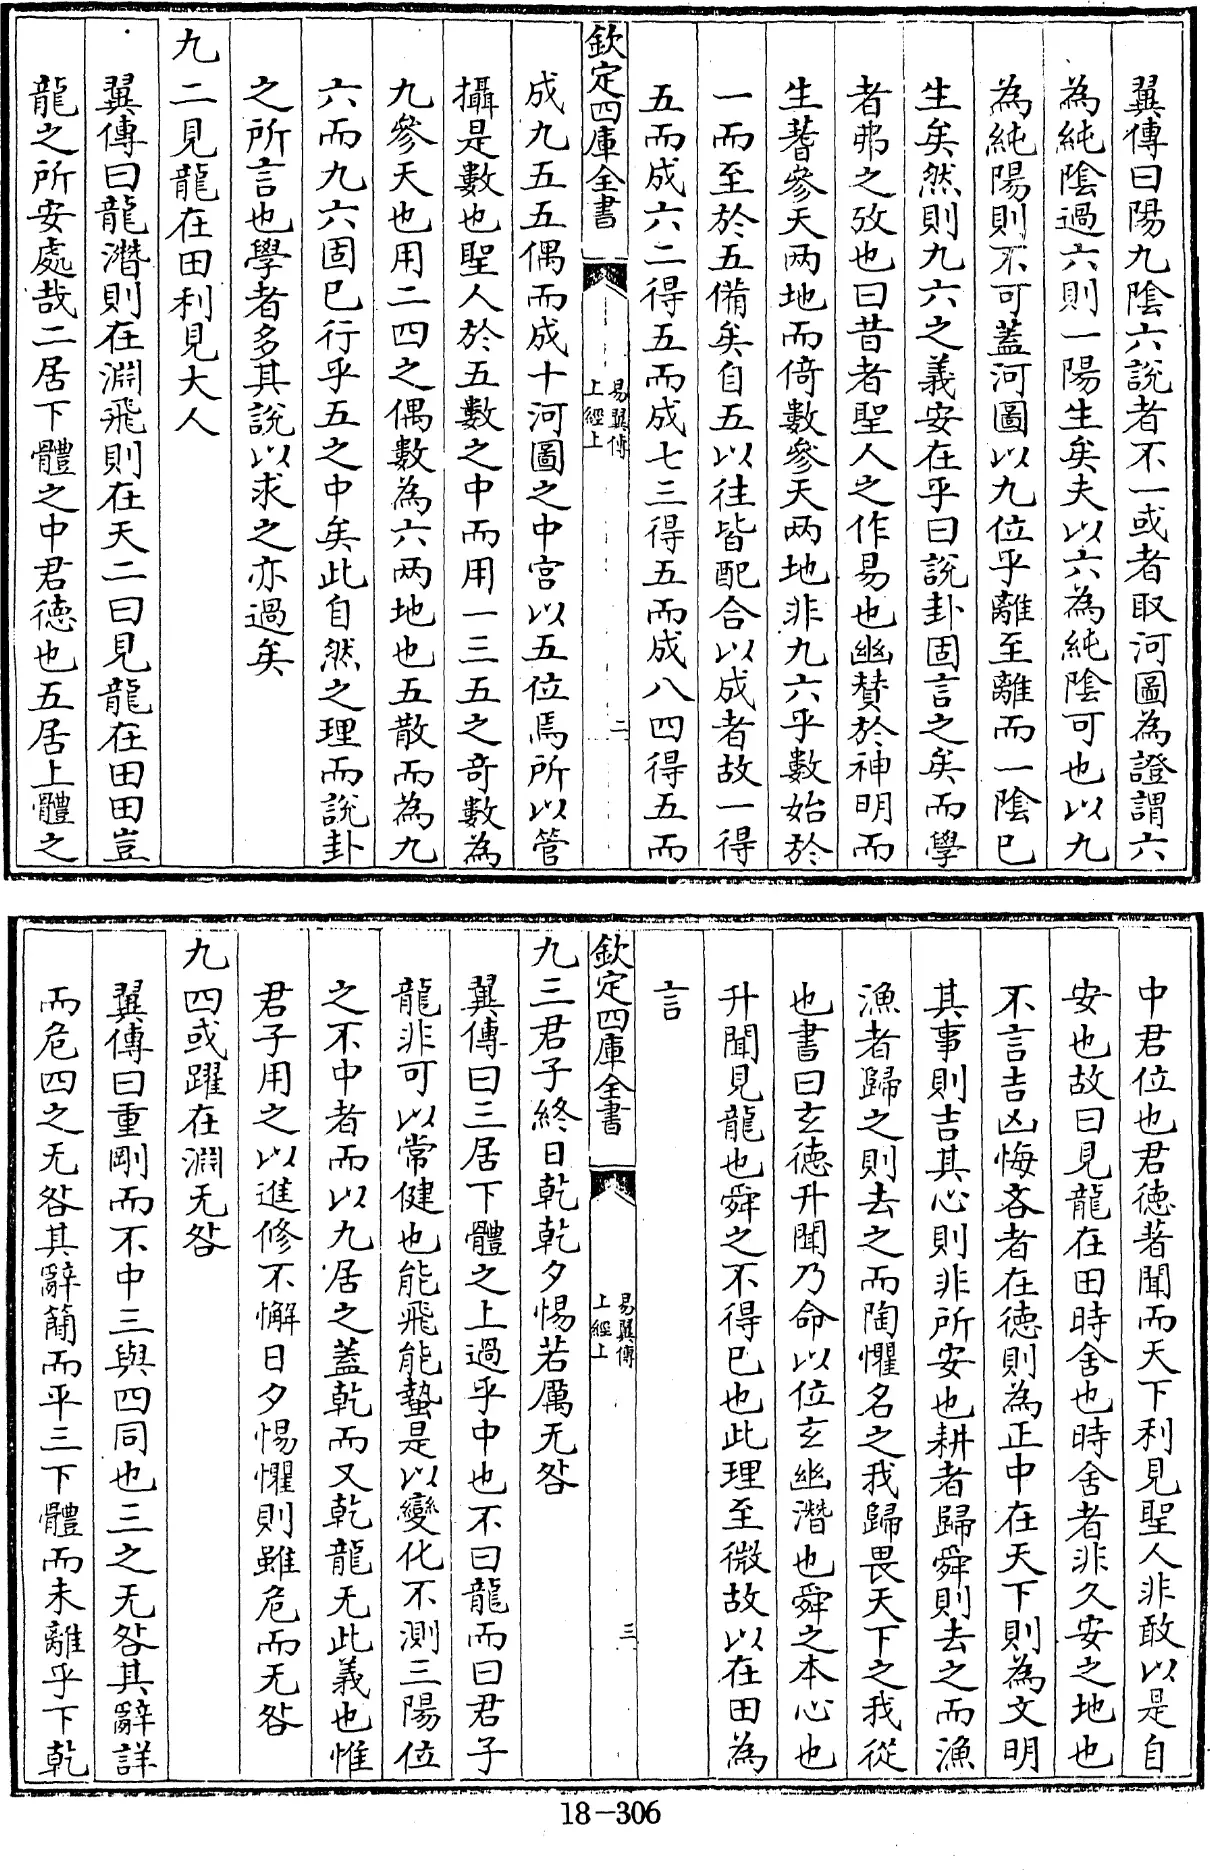 翼傳曰陽九陰六說者不一或者取河圖為證謂六
為純陰過六則一陽生矣夫以六為純陰可也以九
為純陽則不可蓋河圖以九位乎離至離而一陰已
生矣然則九六之義安在乎曰說卦固言之矣而學
者弗之攷也曰昔者聖人之作易也幽賛於神明而
生蓍參天兩地而倚數參天兩地非九六乎數始於
一而至於五備矣自五以往皆配合以成者故一得
五而成六二得五而成七三得五而成八四得五而
欽定四庫全書
易翼傳
上經上
二
成九五五偶而成十河圖之中宮以五位焉所以管
攝是數也聖人於五數之中而用一三五之奇數為
九參天也用二四之偶數為六兩地也五散而為九
六而九六固已行乎五之中矣此自然之理而說卦
之所言也學者多其說以求之亦過矣
九二見龍在田利見大人
翼傳曰龍潛則在淵飛則在天二曰見龍在田田豈
龍之所安處哉二居下體之中君德也五居上體之
中君位也君德著聞而天下利見聖人非敢以是自
安也故曰見龍在田時舍也時舍者非久安之地也
不言吉凶悔吝者在德則為正中在天下則為文明
其事則吉其心則非所安也耕者歸舜則去之而漁
漁者歸之則去之而陶懼名之我歸畏天下之我從
也書曰玄德升聞乃命以位玄幽潛也舜之本心也
升聞見龍也舜之不得已也此理至微故以在田為
言
欽定四庫全書
易翼傳
上經上
三
九三君子終日乾乾夕惕若厲无咎
翼傳曰三居下體之上過乎中也不曰龍而曰君子
龍非可以常健也能飛能蟄是以變化不測三陽位
之不中者而以九居之蓋乾而又乾龍无此義也惟
君子用之以進修不懈日夕惕懼則雖危而无咎
九四或躍在淵无咎
翼傳曰重剛而不中三與四同也三之无咎其辭詳
而危四之无咎其辭簡而平三下體而未離乎下乾
18-306